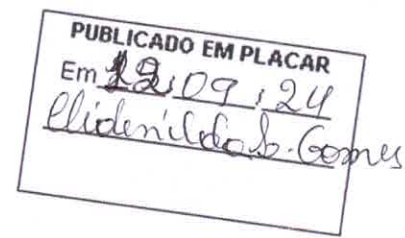 PUBLICADO EM PLACAR
Em 12,09,24
Elidenilda S. Gomes